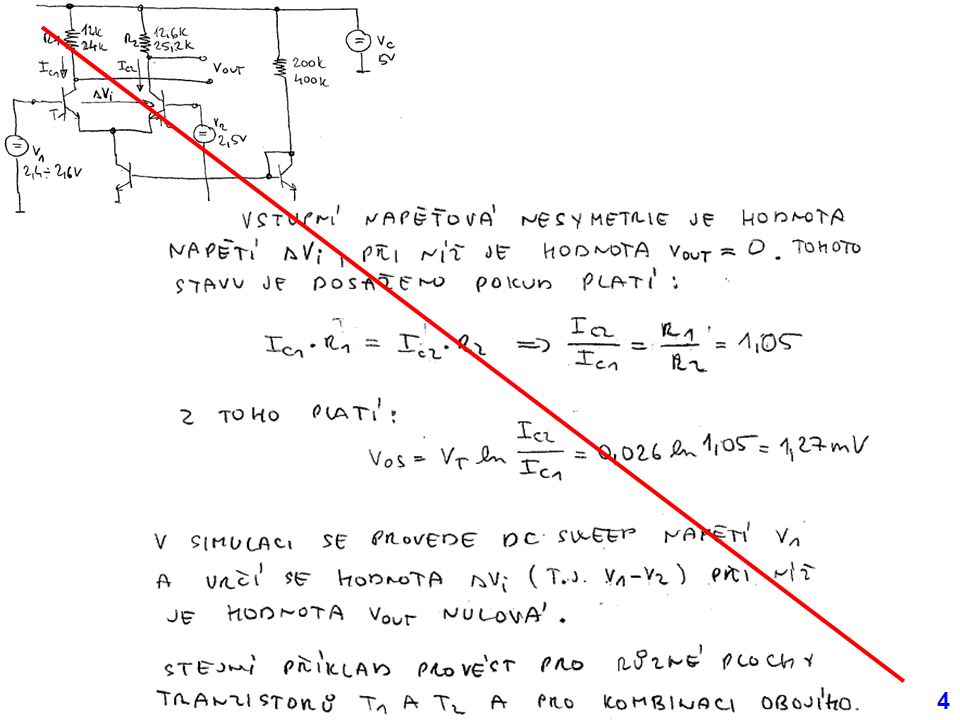 R1 12k
24k
R2 12,6k
25,2k
IC1
IC2
VOUT
200k
400k
VC
5V
ΔVi
V1
2,4÷2,6V
V2
2,5V
VSTUPNÍ NAPĚŤOVÁ NESYMETRIE JE HODNOTA
NAPĚTÍ ΔVi, PŘI NÍŽ JE HODNOTA VOUT = 0. TOHOTO
STAVU JE DOSAŽENO POKUD PLATÍ:
IC1·R1 = IC2·R2 ⇒ IC2/IC1 = R1/R2 = 1,05
Z TOHO PLATÍ:
VOS = VT ln IC2/IC1 = 0,026 ln 1,05 = 1,27mV
V SIMULACI SE PROVEDE DC SWEEP NAPĚTÍ V1
A URČÍ SE HODNOTA ΔVi (T.J. V1-V2) PŘI NÍŽ
JE HODNOTA VOUT NULOVÁ.
STEJNÍ PŘÍKLAD PROVÉST PRO RŮZNÉ PLOCHY
TRANZISTORŮ T1 A T2 A PRO KOMBINACI OBOJÍHO.
4